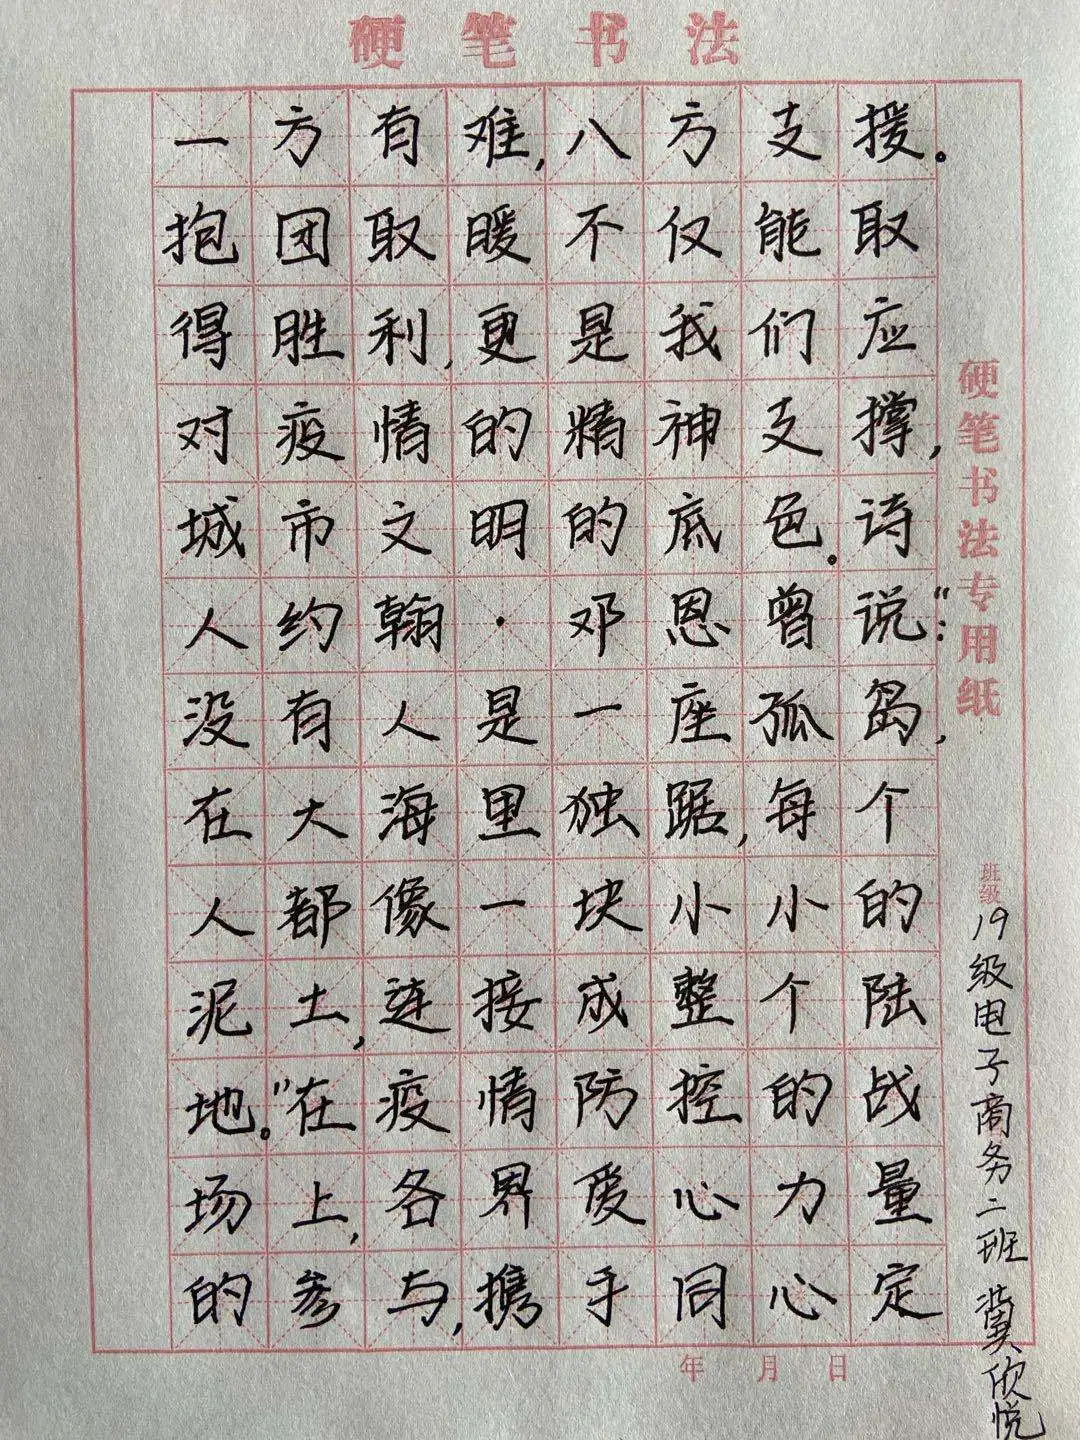 硬笔书法
一方有难,八方支援。
抱团取暖不仅能取
得胜利,更是我们应
对疫情的精神支撑,
城市文明的底色。诗
人约翰·邓恩曾说:“
没有人是一座孤岛,
在大海里独踞,每个
人都像一块小小的
泥土,连接成整个陆
地。”在疫情防控的战
场上,各界爱心力量
的参与,携手同心定
硬笔书法专用纸
班级
19级电子商务二班 冀欣悦
年 月 日